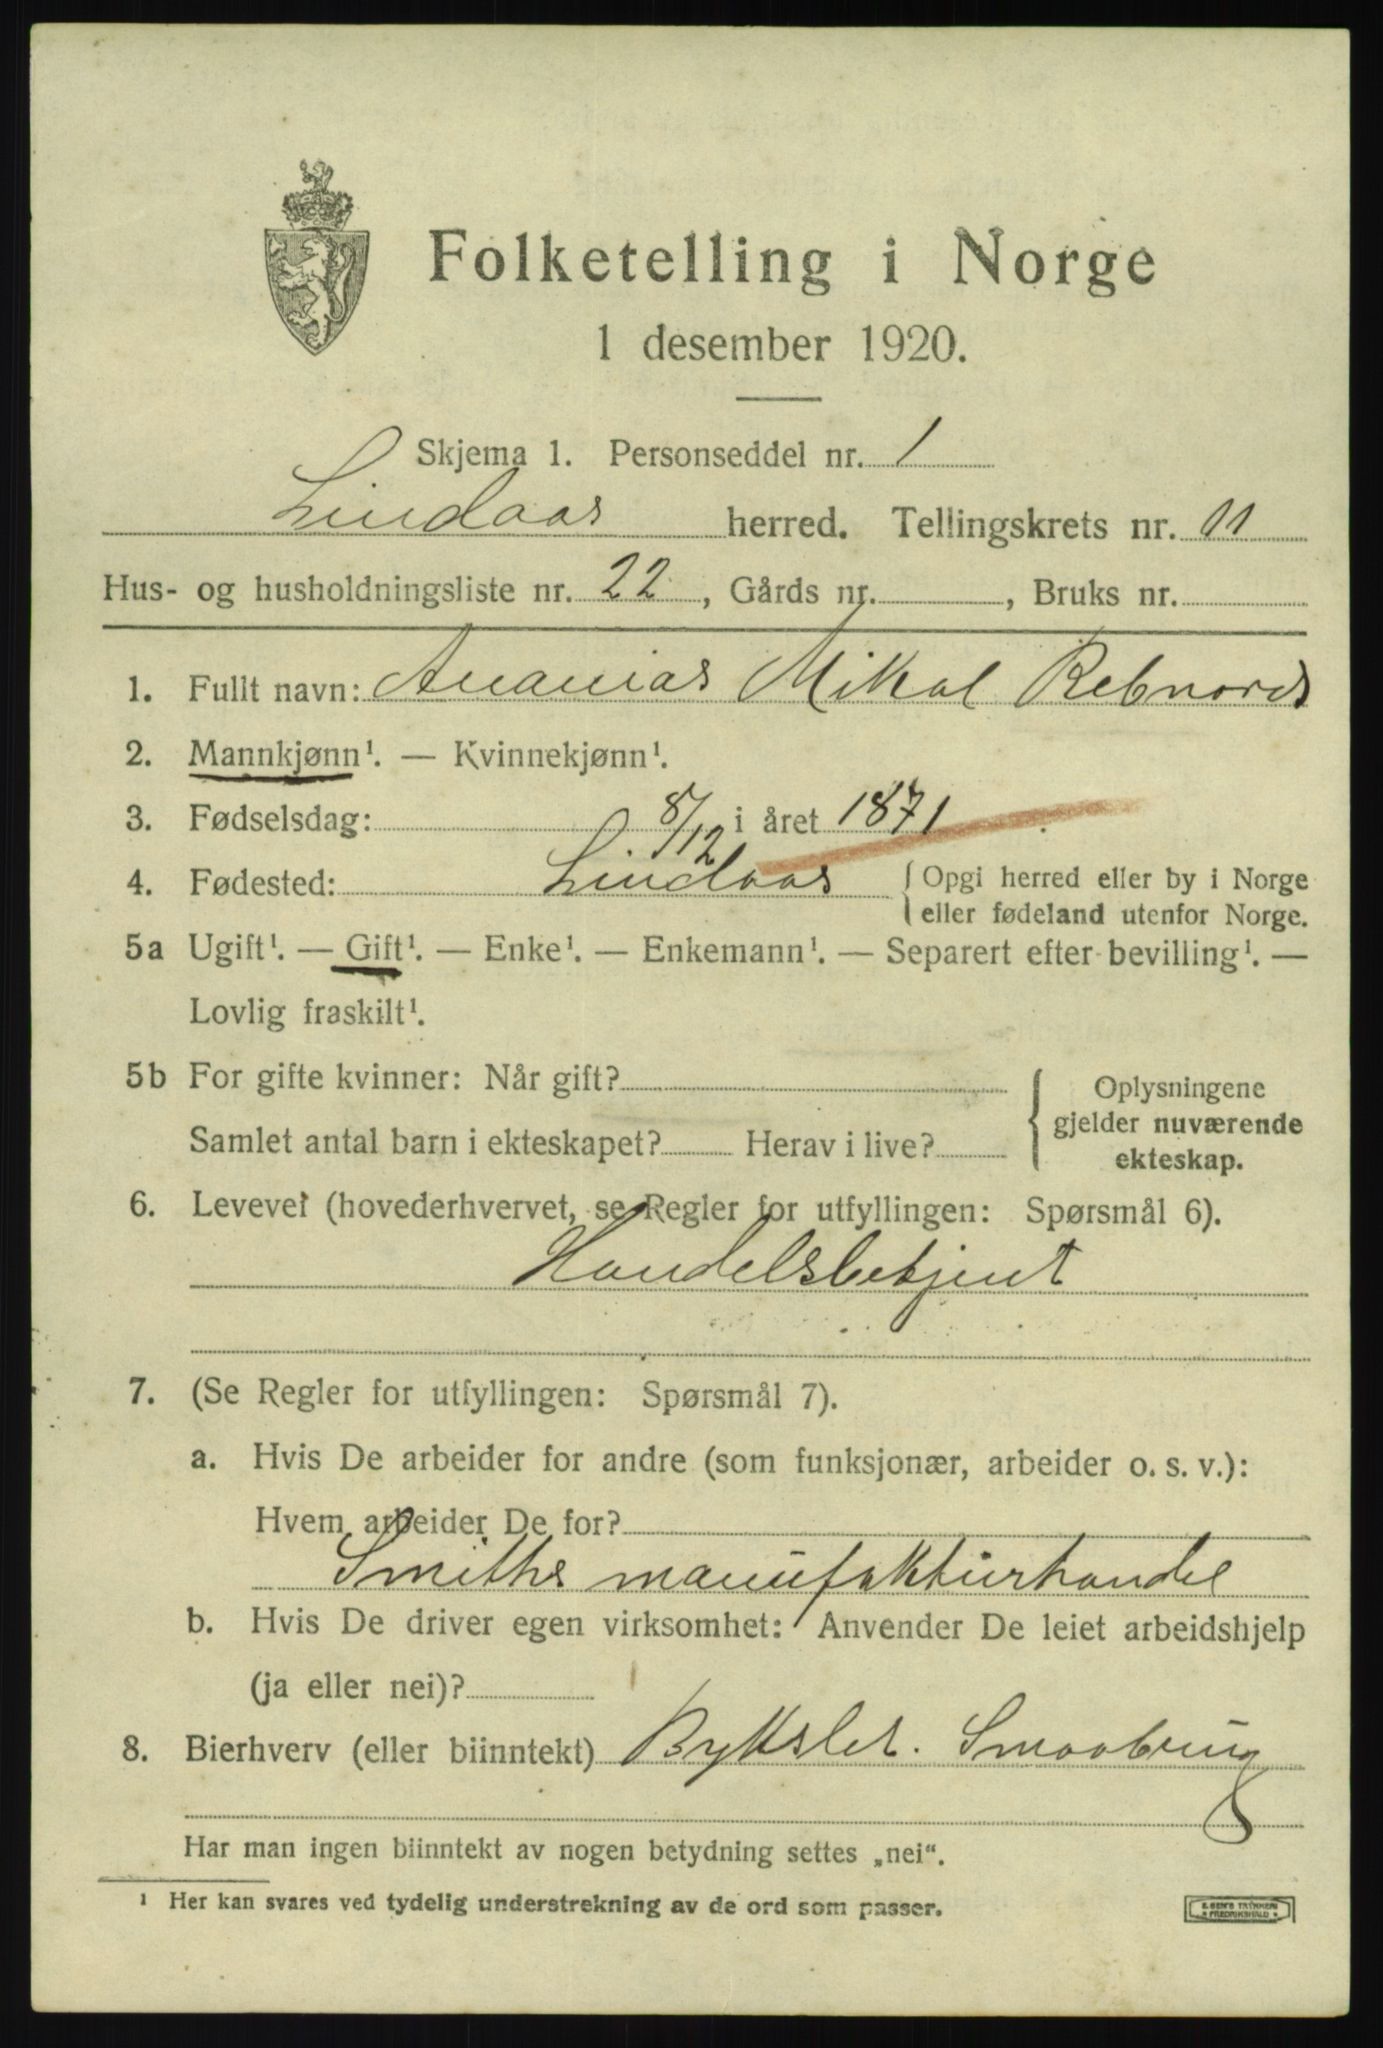 Folketelling i Norge
1 desember 1920.
Skjema 1. Personseddel nr. 1
Lindaas herred. Tellingskrets nr. 11
Hus- og husholdningsliste nr. 22, Gårds nr. , Bruks nr.
1. Fullt navn: Ananias Mikal Rebnord
2. Mannkjønn¹. — Kvinnekjønn¹.
3. Fødselsdag: 8/12 i året 1871
4. Fødested: Lindaas { Opgi herred eller by i Norge
eller fødeland utenfor Norge.
5a Ugift¹. — Gift¹. — Enke¹. — Enkemann¹. — Separert efter bevilling¹. —
Lovlig fraskilt¹.
5b For gifte kvinner: Når gift? { Oplysningene
gjelder nuværende
Samlet antal barn i ekteskapet? Herav i live?
ekteskap.
6. Levevei (hovederhvervet, se Regler for utfyllingen: Spørsmål 6).
Handelsbetjent
7. (Se Regler for utfyllingen: Spørsmål 7).
a. Hvis De arbeider for andre (som funksjonær, arbeider o. s. v.):
Hvem arbeider De for?
Smiths manufakturhandel
b. Hvis De driver egen virksomhet: Anvender De leiet arbeidshjelp
(ja eller nei)?
8. Bierhverv (eller biinntekt) Smaabrug
Har man ingen biinntekt av nogen betydning settes „nei“.
¹ Her kan svares ved tydelig understrekning av de ord som passer.